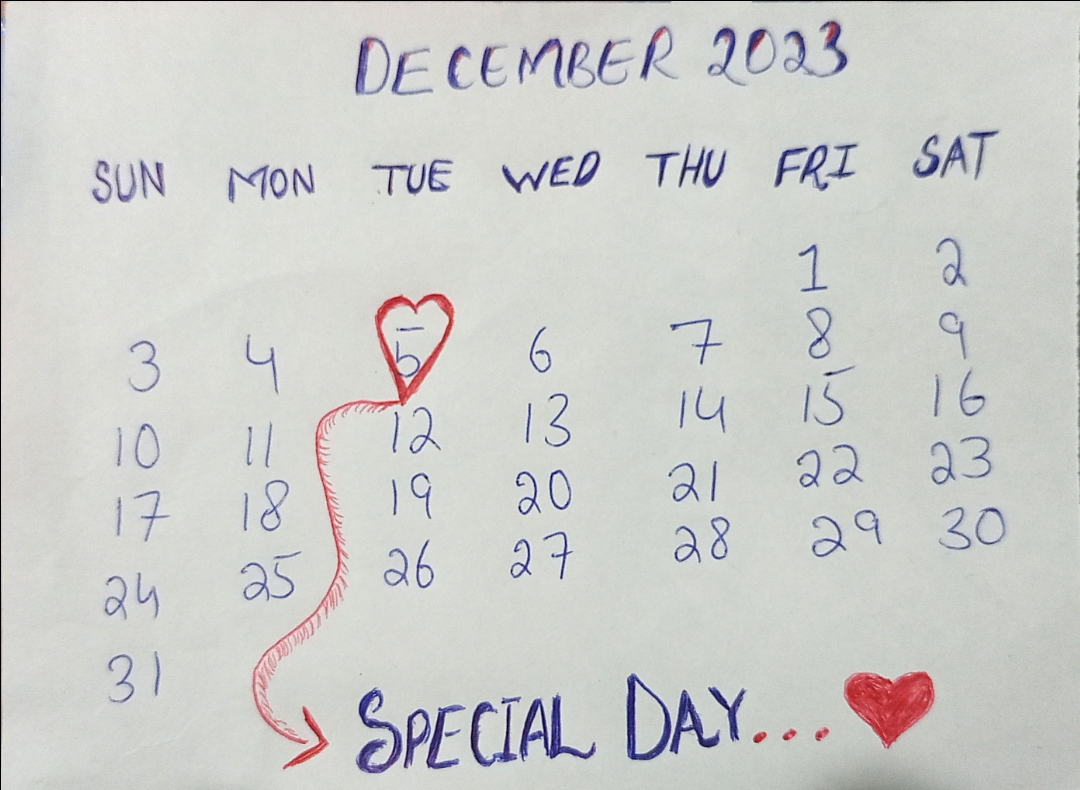 DECEMBER 2023
SUN MON TUE WED THU FRI SAT
1 2
3 4 5 6 7 8 9
10 11 12 13 14 15 16
17 18 19 20 21 22 23
24 25 26 27 28 29 30
31
SPECIAL DAY....